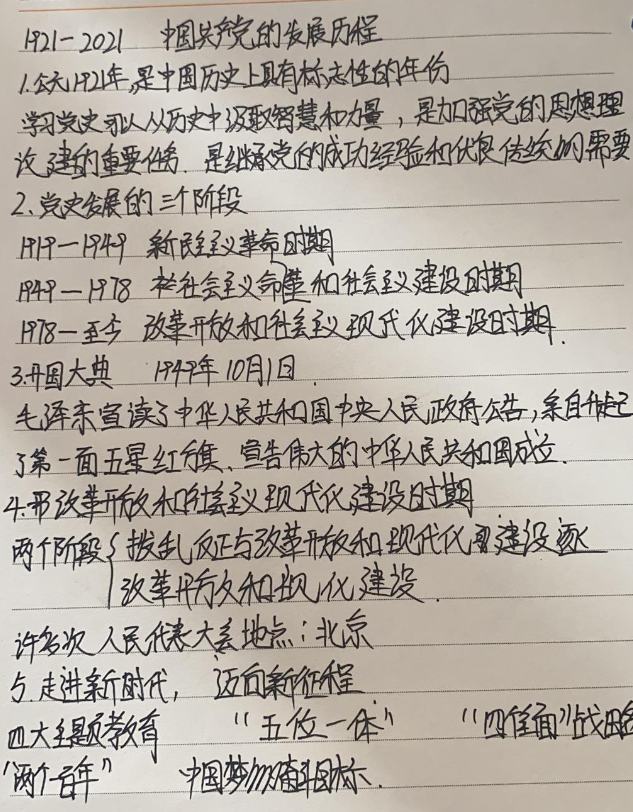 1921-2021 中国共产党的发展历程
1.公元1921年,是中国历史上具有标志性的年份
学习党史可以从历史中汲取智慧和力量,是加强党的思想理
论建的重要任务.是继承党的成功经验和优良传统的需要
2、党史发展的三个阶段
1919—1949 新民主主义革命时期
1949—1978 社会主义革和社会主义建设时期
1978—至今 改革开放和社会主义现代化建设时期.
3.开国大典 1949年10月1日.
毛泽东宣读了中华人民共和国中央人民政府公告,亲自升起
了第一面五星红旗、宣告伟大的中华人民共和国成立.
4.改革开放和社会主义现代化建设时期
两个阶段{拨乱反正与改革开放和现代化建设
改革开放和现代化建设.
许多次人民代表大会地点:北京
5.走进新时代, 迈向新征程
四大主题教育 “五位一体” “四个全面”战略
“两个一百年” 中国梦的奋斗目标.